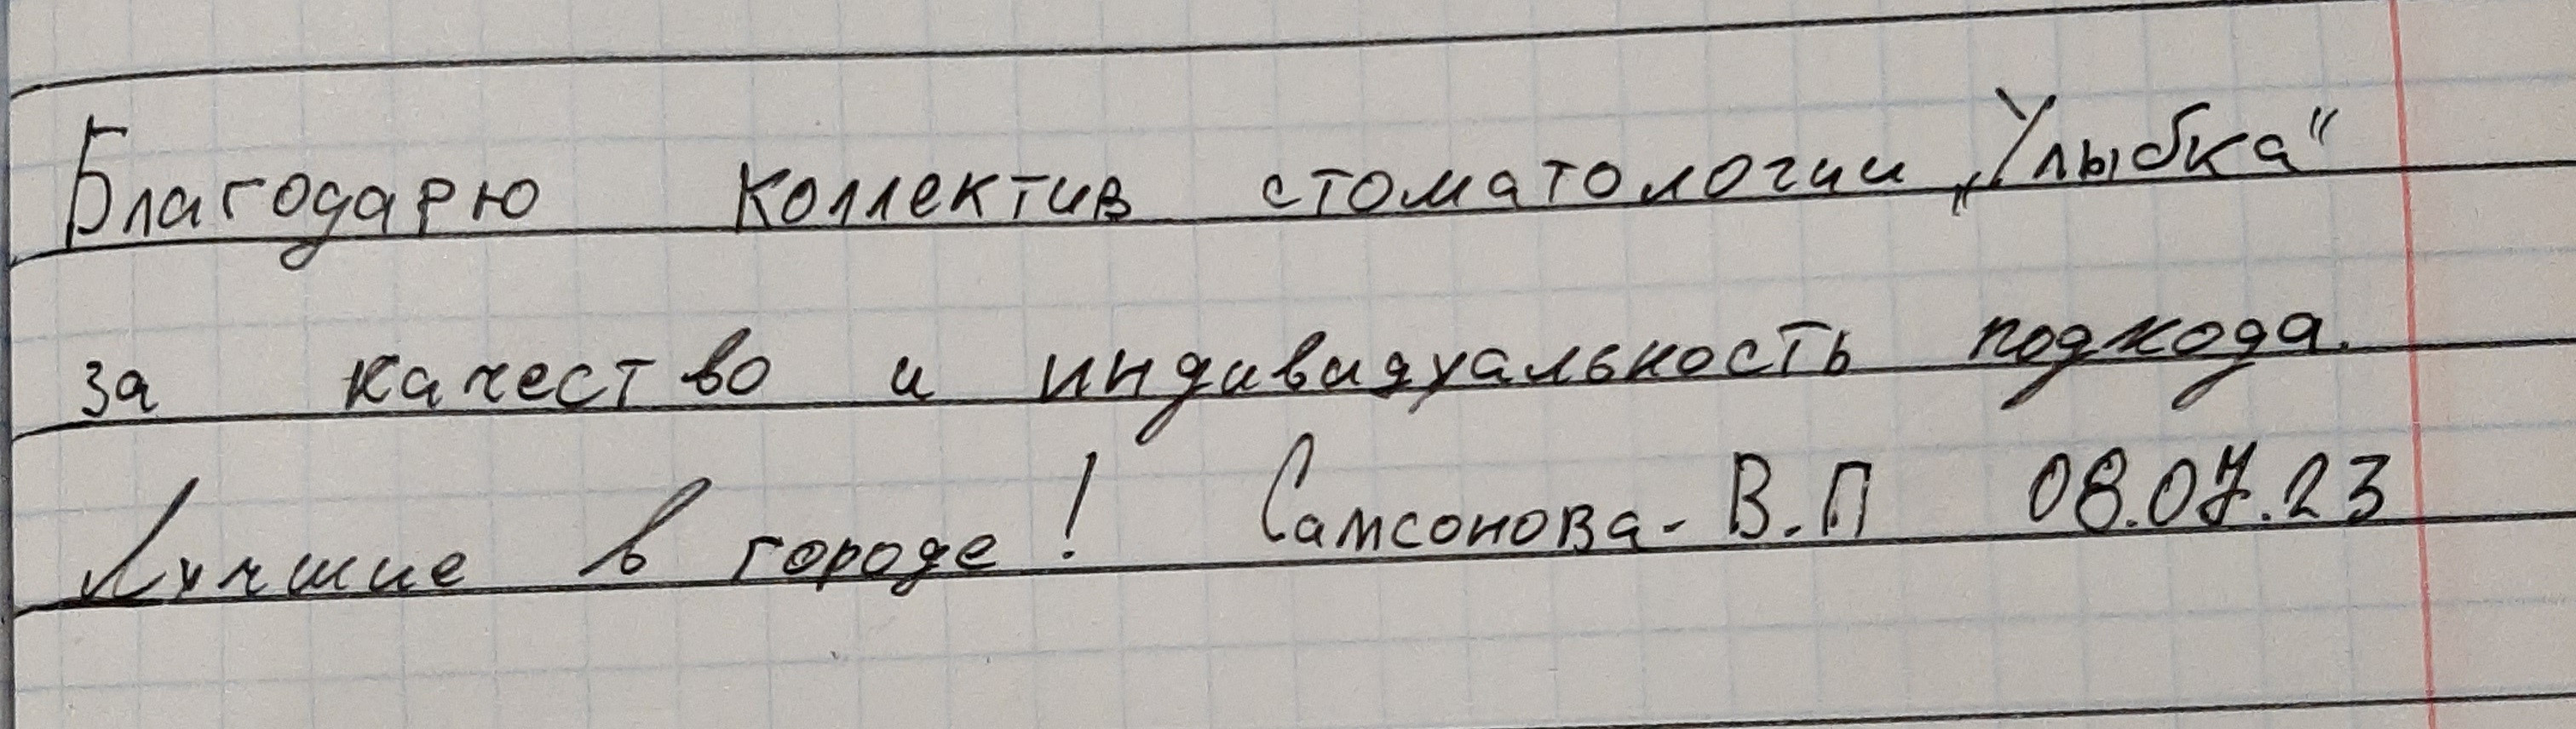 Благодарю коллектив стоматологии „Улыбка“
за качество и индивидуальность подхода.
Лучшие в городе! Самсонова - В.П 08.07.23